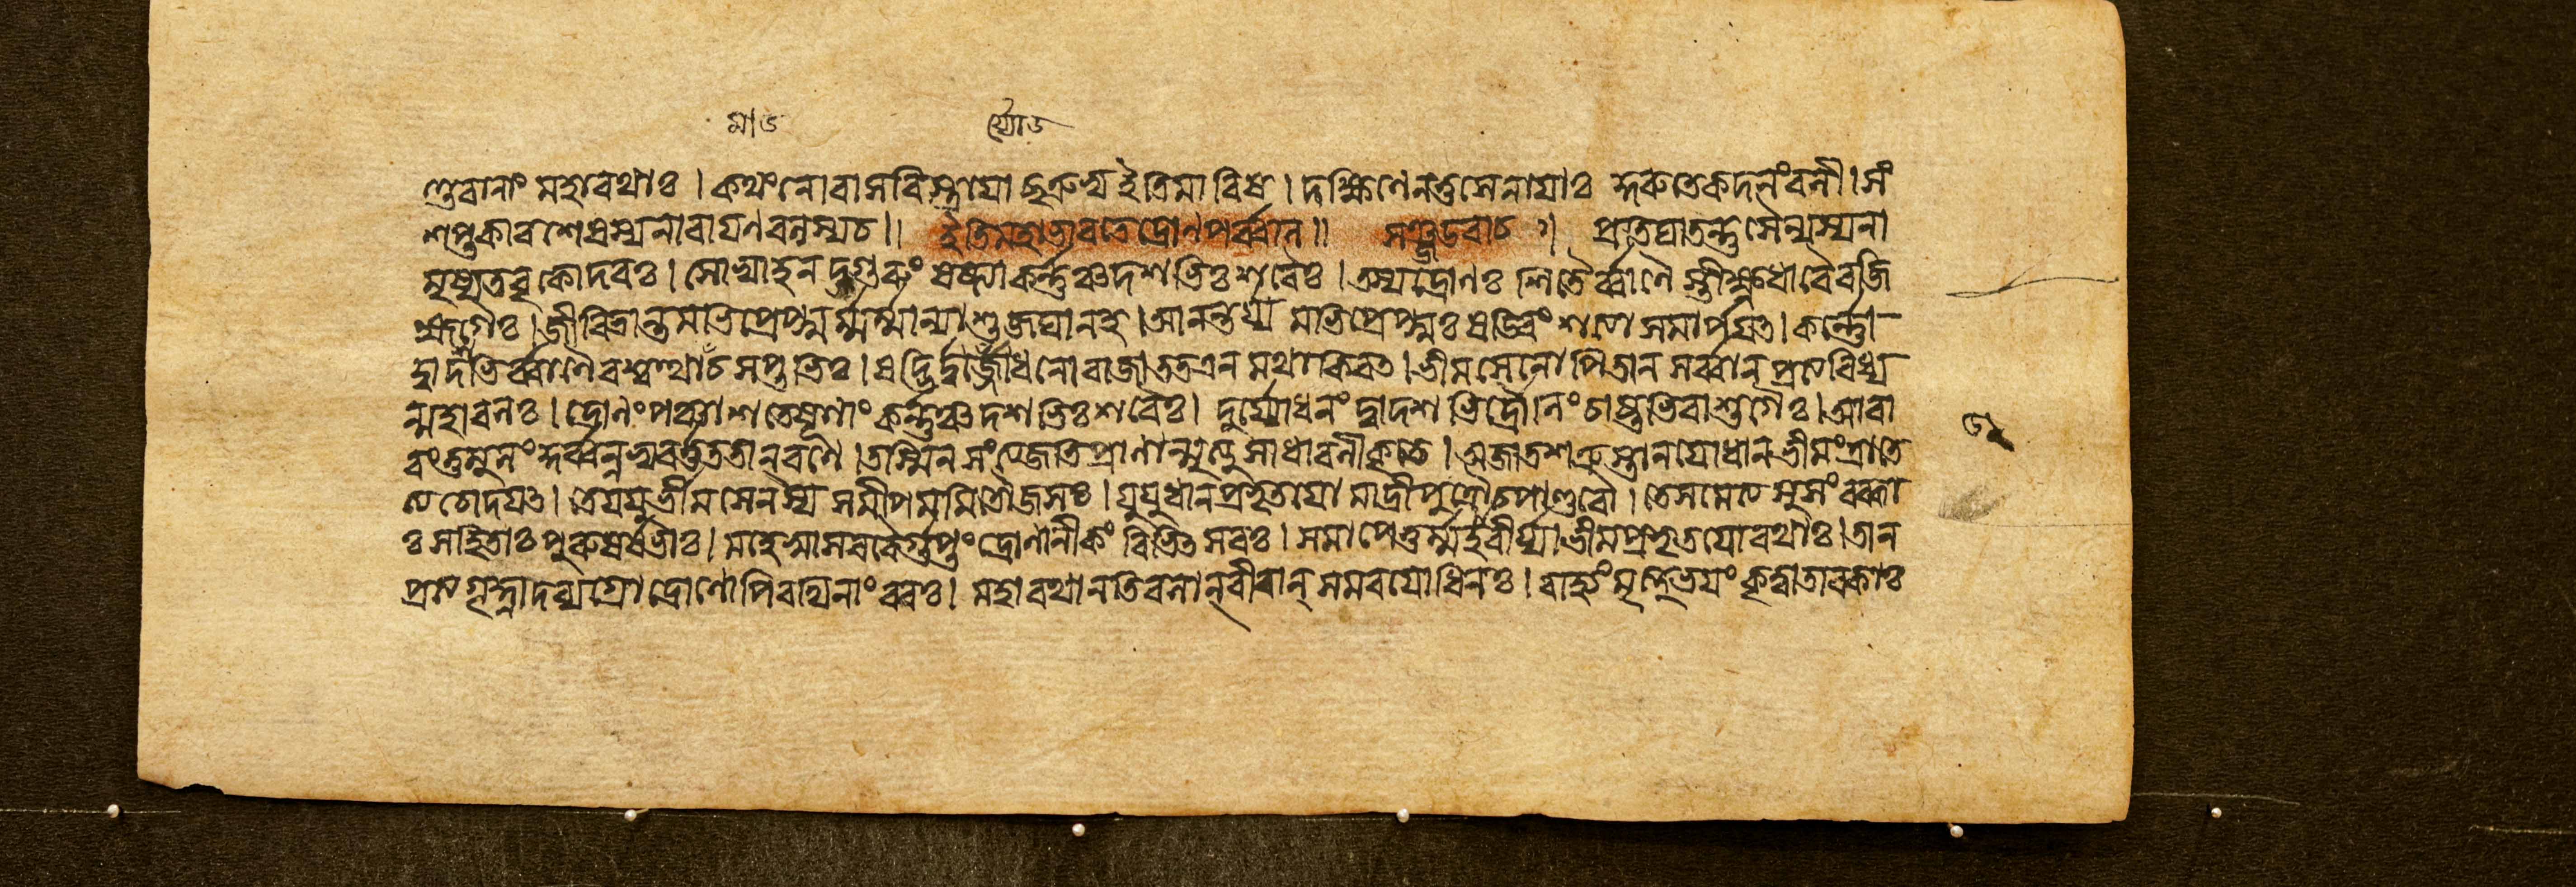 ণ্ডবানাং মহাৰথাঃ । কথং নো বাসবিস্ত্রাযো হৃত্রুষ্য ইতি মাবিষ । দক্ষিণেন তু সেনাযাঃ কুরুতে কদনং বলী । সং
শপ্তকাবশেষস্য নাৰাযণবলস্য চ ॥ ইতি মহাভাৰতে দ্রোণপর্ব্বনি ॥ সঞ্জয উবাচ । প্রতিঘাতন্তু সৈন্যস্য না
মৃষ্যত বৃকোদৰঃ । সোভ্যাহনদ্গুৰুং ষষ্ট্যা কর্ন্নঞ্চ দশভিঃ শৰৈঃ । তস্য দ্রোণঃ শিতৈর্ব্বাণৈ স্তীক্ষ্ণধাৰৈৰজি
হ্মগৈঃ । জীবিতান্তমভিপ্রেপ্সুর্ম্মর্ম্মণ্যাশু জঘান হ । আনন্তর্য্যমভিপ্রেপ্সুঃ ষড্বিংশত্যা সমার্পযত্ । কর্ন্নো
দ্বাদশভির্ব্বাণৈৰশ্বত্থামা চ সপ্তভিঃ । ষড্ভির্দুর্য্যোধনো ৰাজা তত এনমথাকিৰত্ । ভীমসেনোপি তান্ সর্ব্বান্ প্রত্যবিধ্য
ন্মহাবলঃ । দ্রোণং পঞ্চাশতেষূণাং কর্ন্নঞ্চ দশভিঃ শৰৈঃ । দুর্য্যোধনং দ্বাদশভির্দ্রৌণিং চাষ্টাভিৰাশুগৈঃ । আৰা
বং তুমুলং কুর্ব্বন্নভ্যবর্ত্তত তান্ ৰণে । তস্মিন্ সংত্যজতি প্রাণান্মৃত্যুসাধাৰণীকৃতে । অজাতশত্রুস্তান্ যোধান্ ভীমং ত্রাতে
ত্যচোদযত্ । তে যযুর্ভীমসেনস্য সমীপমমিতৌজসঃ । যুযুধানপ্রভৃতযো মাদ্রীপুত্রৌ চ পাণ্ডবৌ । তে সমেত্য সুসংৰব্ধা
ঃ সহিতাঃ পুৰুষর্ষভাঃ । মহেষ্বাসবৰৈর্গুপ্তং দ্রোণানীকং বিভিত্সবঃ । সমাপেতুর্ম্মহাবীর্য্যা ভীমপ্রভৃতযো ৰথাঃ । তান্
প্রত্যগৃহ্নাদব্যগ্রো দ্রোণোপি ৰথিনাং বৰঃ । মহাৰথানতিবলান্ বীৰান্ সমৰযোধিনঃ । বাহ্যং মৃত্যুভযং কৃত্বা তাবকাঃ